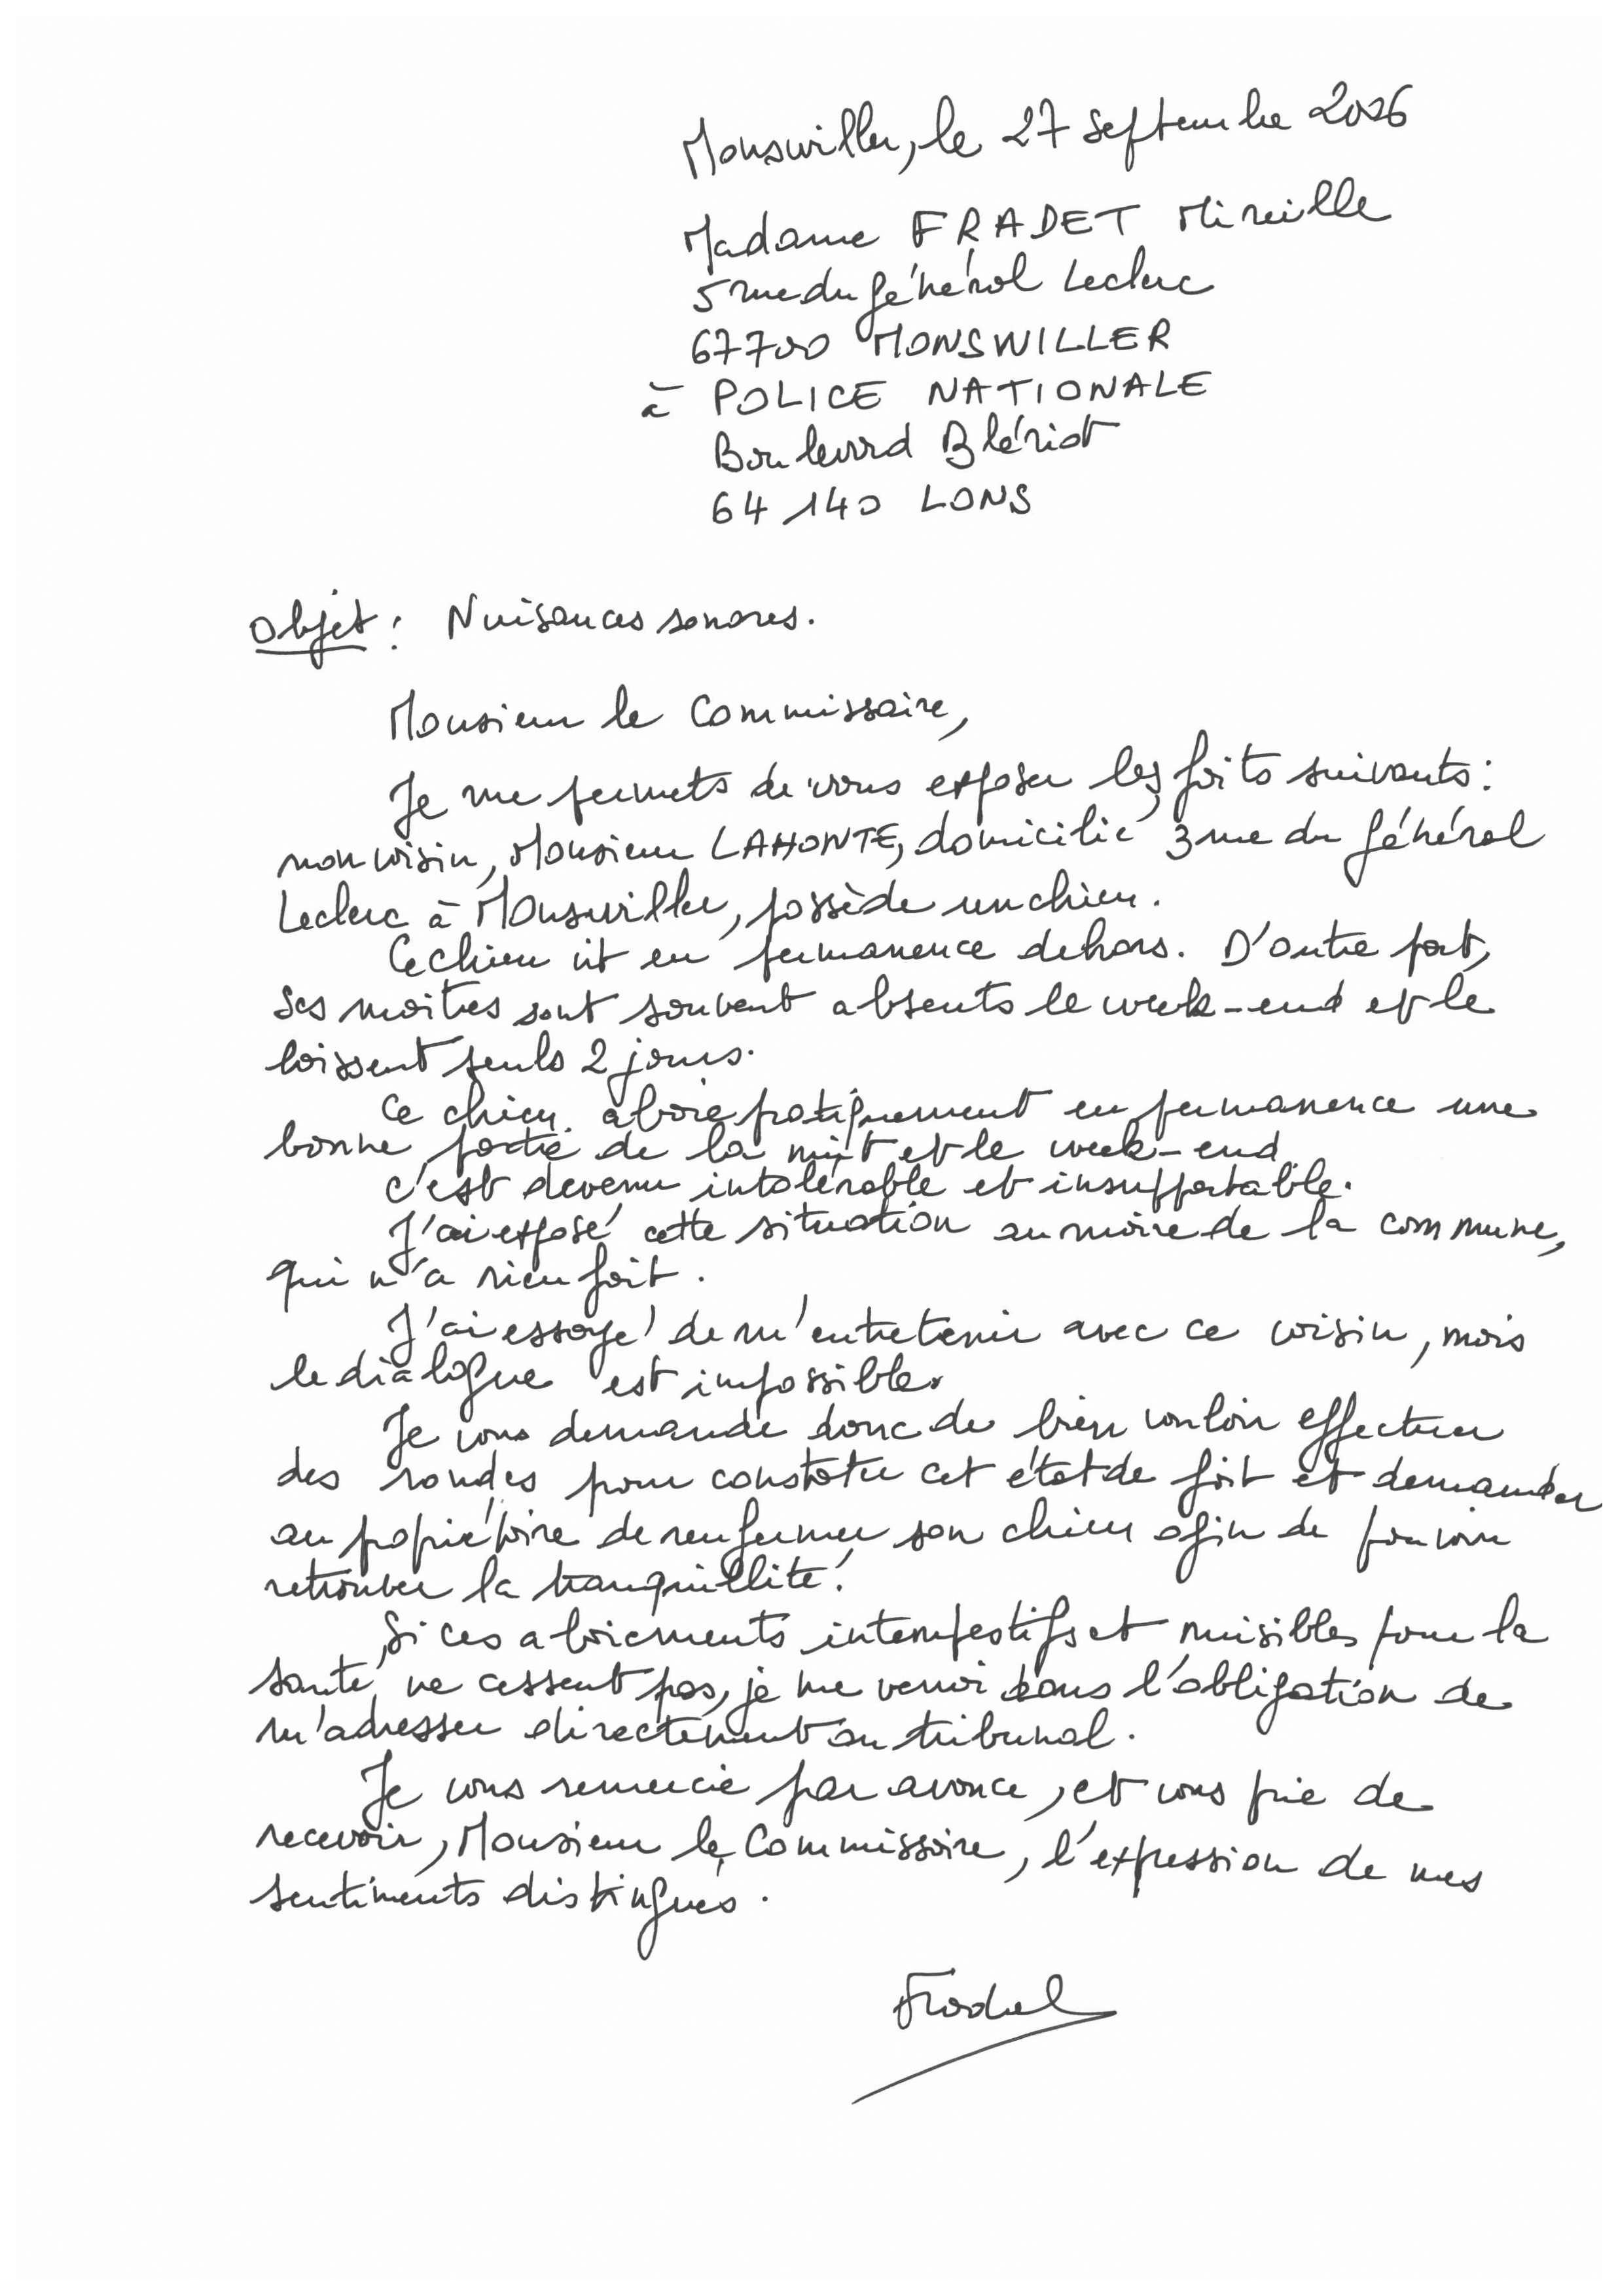 Monswiller, le 27 septembre 2006
Madame FRADET Mireille
5 rue du Général Leclerc
67700 MONSWILLER
à POLICE NATIONALE
Boulevard Blériot
64140 LONS
Objet : Nuisances sonores.
Monsieur le Commissaire,
Je me permets de vous exposer les faits suivants :
mon voisin, Monsieur LAHONTE, domicilié 3 rue du Général
Leclerc à Monswiller, possède un chien.
Ce chien vit en permanence dehors. D'autre part,
ses maîtres sont souvent absents le week-end et le
laissent seuls 2 jours.
Ce chien aboie pratiquement en permanence une
bonne partie de la nuit et le week-end
c'est devenu intolérable et insupportable.
J'ai exposé cette situation au maire de la commune,
qui n'a rien fait.
J'ai essayé de m'entretenir avec ce voisin, mais
le dialogue est impossible.
Je vous demande donc de bien vouloir effectuer
des rondes pour constater cet état de fait et demander
au propriétaire de renfermer son chien afin de pouvoir
retrouver la tranquillité !
Si ces aboiements intempestifs et nuisibles pour la
santé ne cessent pas, je me verrai dans l'obligation de
m'adresser directement au tribunal.
Je vous remercie par avance, et vous prie de
recevoir, Monsieur le Commissaire, l'expression de mes
sentiments distingués.
Fradet